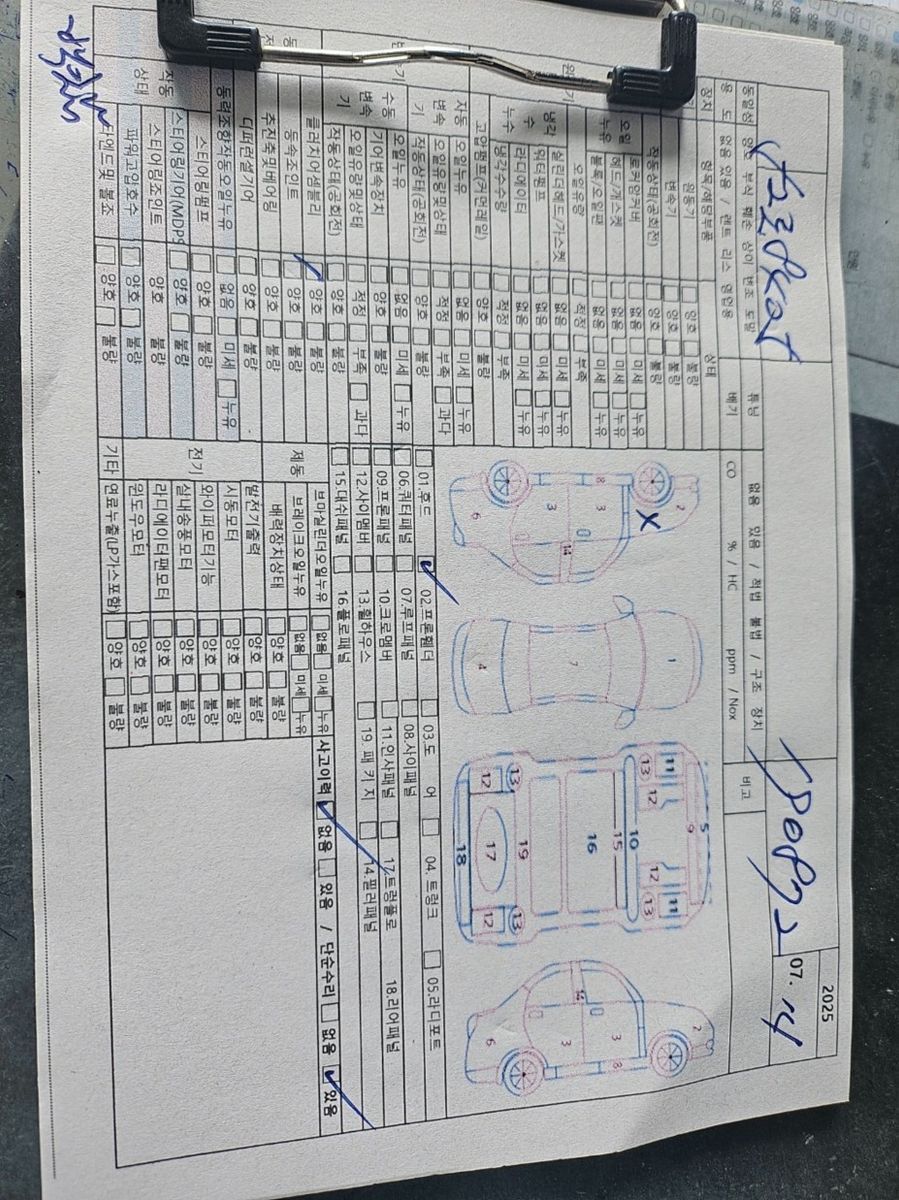 2025
07.14
동일성 양호 부식 훼손 상이 변조 도말
튜닝 없음 있음 / 적법 불법 / 구조 장치
용도 없음 있음 / 렌트 리스 영업용
배기 CO % / HC ppm / Nox
비고
장치 항목/해당부품 상태
원동기 □ 양호 □ 불량
변속기 □ 양호 □ 불량
작동상태(공회전) □ 양호 □ 불량
오일누유
로커암커버 □ 없음 □ 미세 □ 누유
헤드/개스켓 □ 없음 □ 미세 □ 누유
블록/오일팬 □ 없음 □ 미세 □ 누유
오일유량 □ 적정 □ 부족
냉각수누수
실린더헤드/가스켓 □ 없음 □ 미세 □ 누유
워터펌프 □ 없음 □ 미세 □ 누유
라디에이터 □ 없음 □ 미세 □ 누유
냉각수수량 □ 적정 □ 부족
고압펌프(커먼레일) □ 양호 □ 불량
자동
오일누유 □ 없음 □ 미세 □ 누유
오일유량및상태 □ 적정 □ 부족 □ 과다
작동상태(공회전) □ 양호 □ 불량
수동변속기
오일누유 □ 없음 □ 미세 □ 누유
기어변속장치 □ 양호 □ 불량
오일유량및상태 □ 적정 □ 부족 □ 과다
작동상태(공회전) □ 양호 □ 불량
클러치어셈블리 □ 양호 □ 불량
등속조인트 □ 양호 □ 불량
추진축및베어링 □ 양호 □ 불량
디퍼런셜기어 □ 양호 □ 불량
동력조향작동오일누유 □ 없음 □ 미세 □ 누유
작동상태
스티어링펌프 □ 양호 □ 불량
스티어링기어(MDPS □ 양호 □ 불량
스티어링조인트 □ 양호 □ 불량
파워고압호수 □ 양호 □ 불량
타이로드엔드및 볼조 □ 양호 □ 불량
2 X 8 3 3 14 6
1 7 4
5 9 11 11 13 12 12 13 10 15 16 19 13 13 12 17 12 18
2 8 3 3 14 6
□ 01.후드 ✓ 02.프론휀더 □ 03.도어 □ 04.트렁크 □ 05.라디포트
□ 06.쿼터패널 □ 07.루프패널 □ 08.사이패널
□ 09.프론패널 □ 10.크로멤버 □ 11.인사패널 □ 17.트렁플로 18.리어패널
□ 12.사이멤버 □ 13.휠하우스 □ 19.패키지 □ 14.필러패널
□ 15.대쉬패널 □ 16.플로패널
사고이력 ✓ 없음 □ 있음 / 단순수리 □ 없음 ✓ 있음
제동
브마실린더오일누유 □ 없음 □ 미세 □ 누유
브레이크오일누유 □ 없음 □ 미세 □ 누유
배력장치상태 □ 양호 □ 불량
전기
발전기출력 □ 양호 □ 불량
시동모터 □ 양호 □ 불량
와이퍼모터기능 □ 양호 □ 불량
실내송풍모터 □ 양호 □ 불량
라디에이터팬모터 □ 양호 □ 불량
윈도우모터 □ 양호 □ 불량
기타 연료누출(LP가스포함) □ 양호 □ 불량